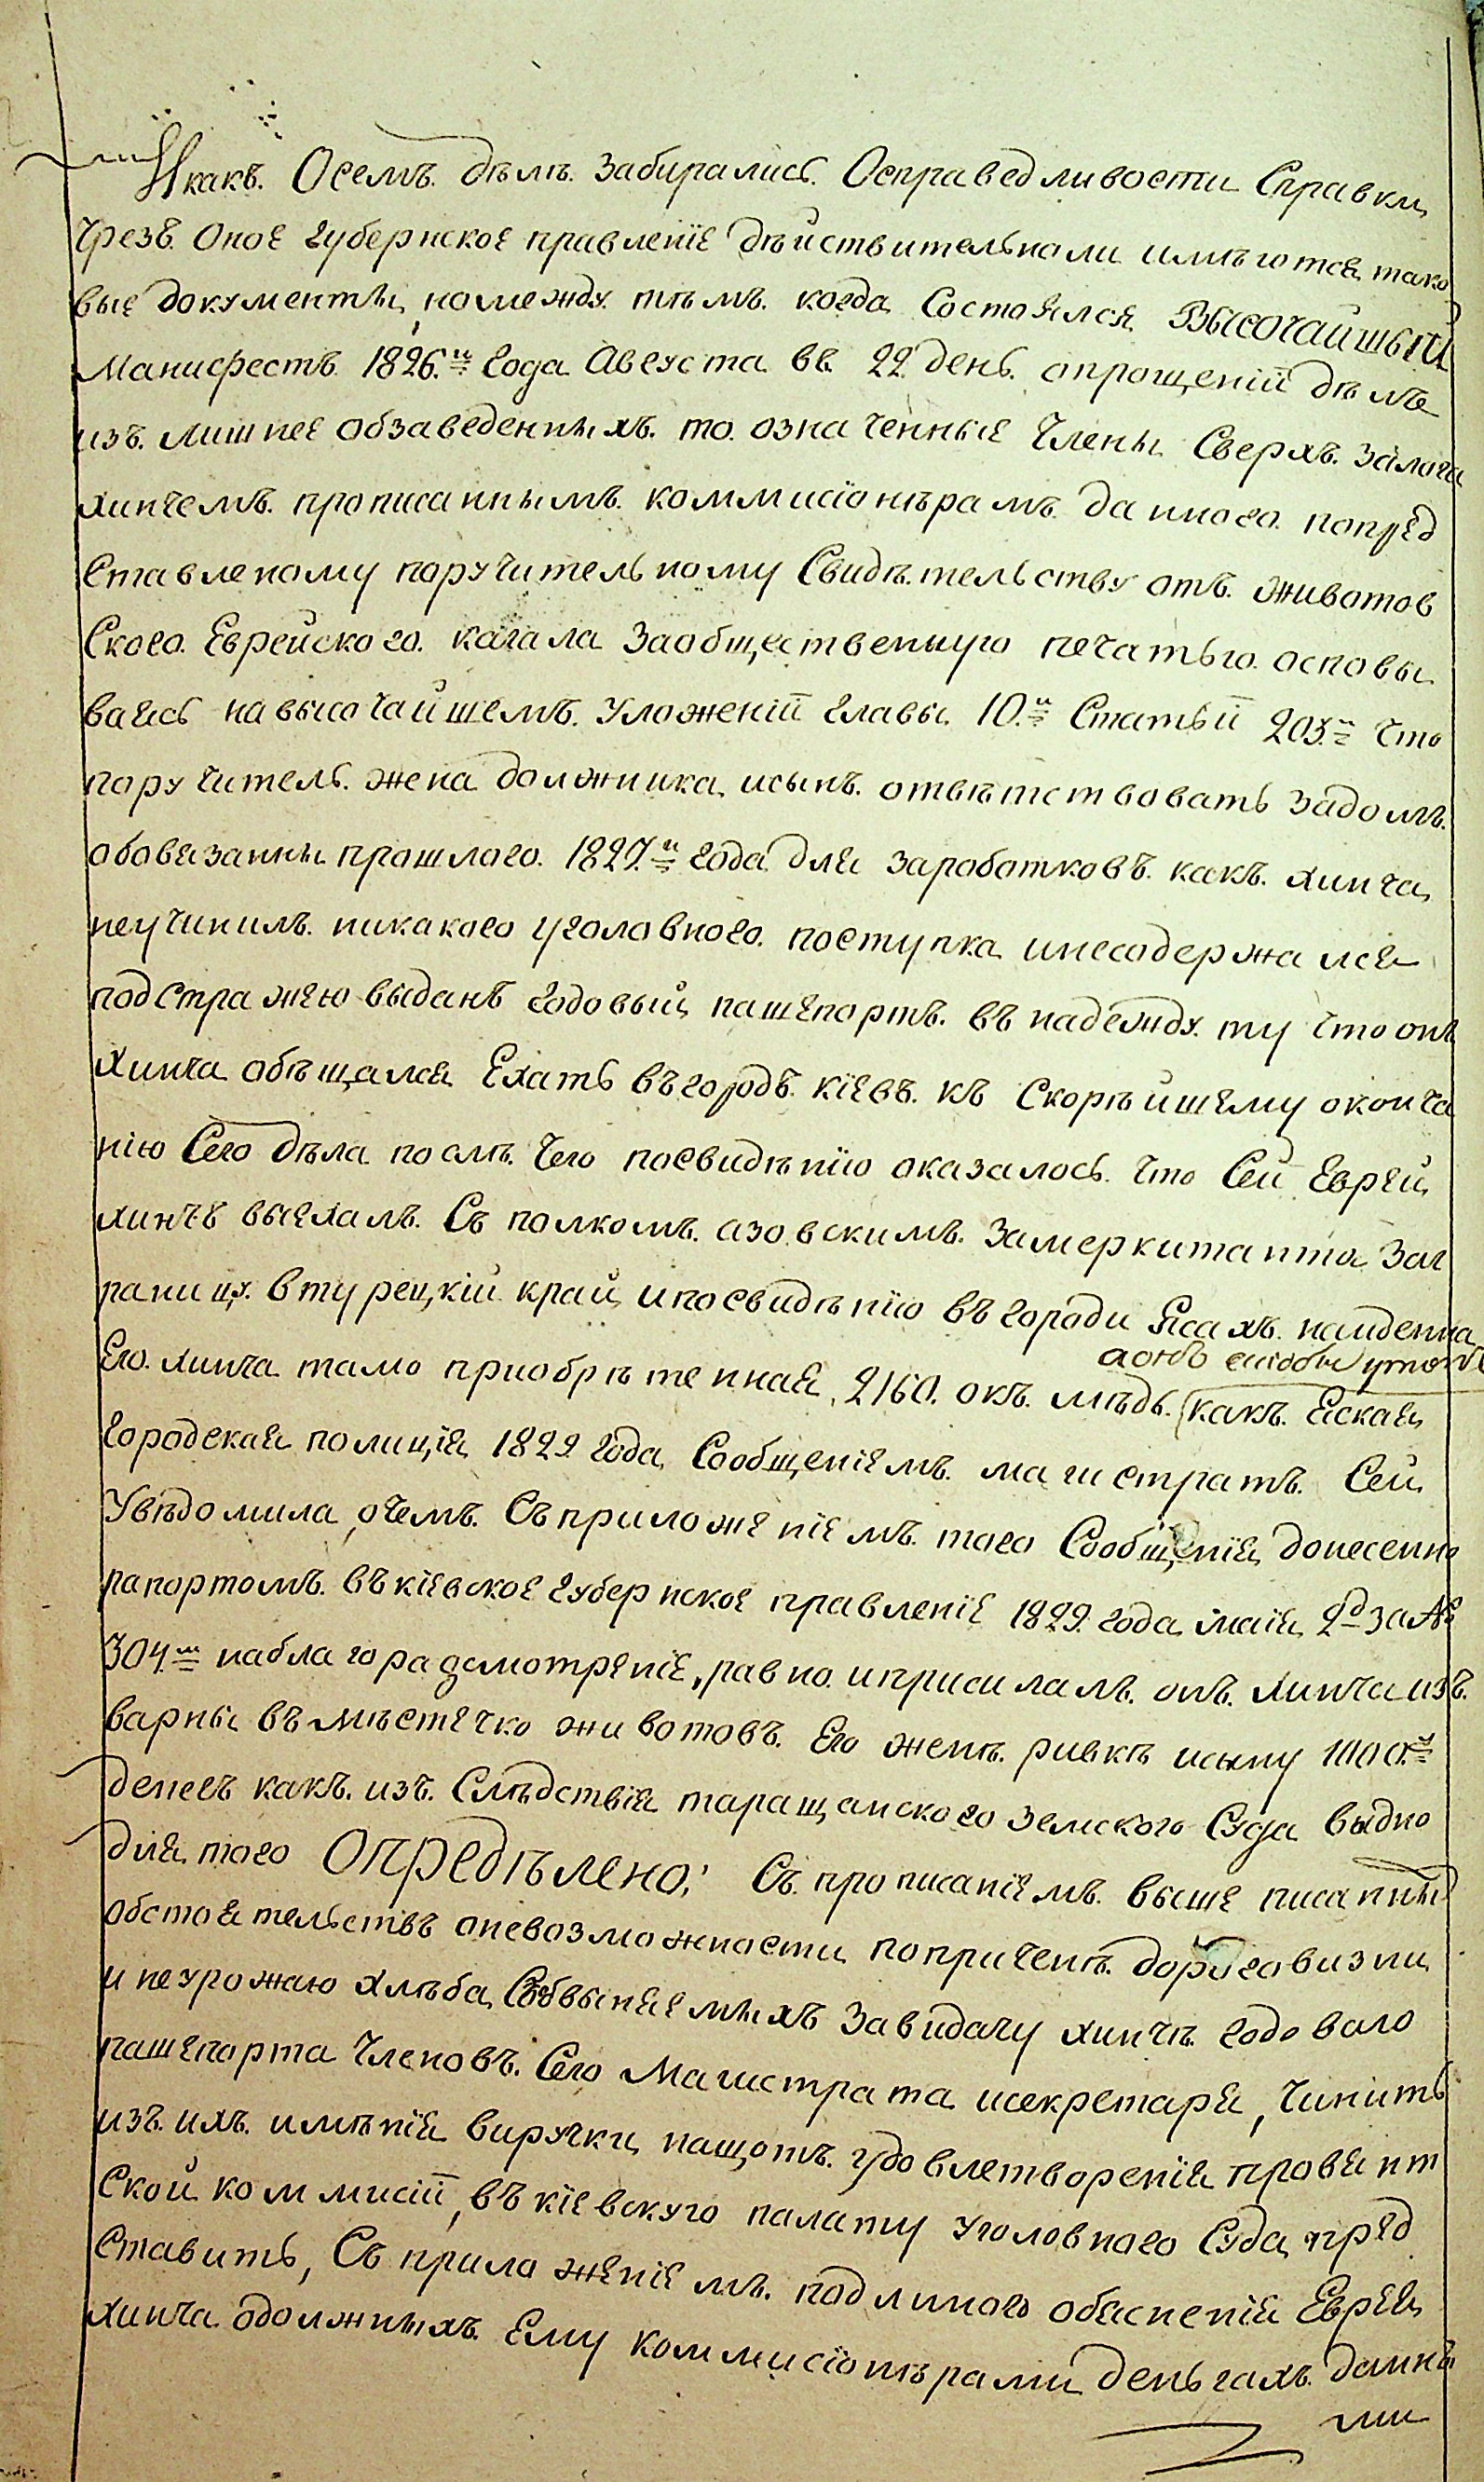 Я какъ. Осемъ. дѣлѣ. забирались. Осправедливости Справки
Чрезъ. Оное губернское правленіе дѣйствительноли имѣются тако
вые документы, номежду. тѣмъ. когда Состоялся ВЫСОЧАЙШЫЙ
Манифестъ 1826.го Года Августа въ 22 день. опрощеніи дѣлъ
изъ. лишнее обзаведенныхъ. то. означенные Члены Сверхъ. залога
хинчемъ. прописаннымъ. коммисіонѣрамъ. данного. попред
Ставленому поручительному Свидѣтельству отъ. животов
Ского. Еврейского. кагала Заобщественную печатью. основы
ваясь навысочайшемъ. Уложеніи главы. 10.й Статьи 203.й Что
поручитель. жена должника, исынъ. отвѣтствовать задолгъ.
обовязанны прошлого. 1827.го года для заработковъ. какъ. хинча,
неучинилъ. никакого уголовного. поступка инесодержался
подстражею выданъ годовый пашепортъ. въ надежду. ту Что онъ
Хинча обѣщался Ехать въгородъ. кіевъ. къ Скорѣйшему оконча
нію Сего дѣла послѣ. Чего посвидѣнію оказалось. Что Сей Еврей
хинчъ выехалъ. Съ полкомъ. азовскимъ. замеркитанта Заг
раницу. втурецкій край, ипосвидѣнію въ городи Ясахъ. найденна
аонъ
Его. хинча тамо приобрѣтенная, 2160. окъ. мѣдь. какъ. Яская
Городская полиція 1829 года Сообщеніемъ. магистратъ. Сей
Увѣдомила, очемъ. Съприложеніемъ. того Сообщенія, донесенно
рапортомъ. въкіевское губернское правленіе 1829. года маія 2д за №
304.м наблагорадсмотреніе, равно. иприсилалъ. онъ. хинча изъ.
варны въ мѣстечко животовъ. Его женѣ. ривкѣ исыну 1000.
денегъ какъ. изъ. Слѣдствія таращанского земского Суда выдно
для того ОПРЕДѢЛЕНО: Съ. прописаніемъ. выше писанныхъ
обстоятельствъ оневозможности поприченѣ. дороговизни
и неурожаю хлѣба, Собвыняемыхъ завидачу хинчѣ. годоваго
пашепорта Членовъ. Сего Магистрата исекретаря, чинить
изъ. ихъ. имѣнія виручки нащотъ. удовлетворенія провіянт
Ской коммисіи, въ кіевскую палату Уголовного Суда пред
Ставить, Съ приложеніемъ. подлиного обясненія Еврея
хинча одолжныхъ. Ему коммисіонѣрами деньгахъ. данны
ми